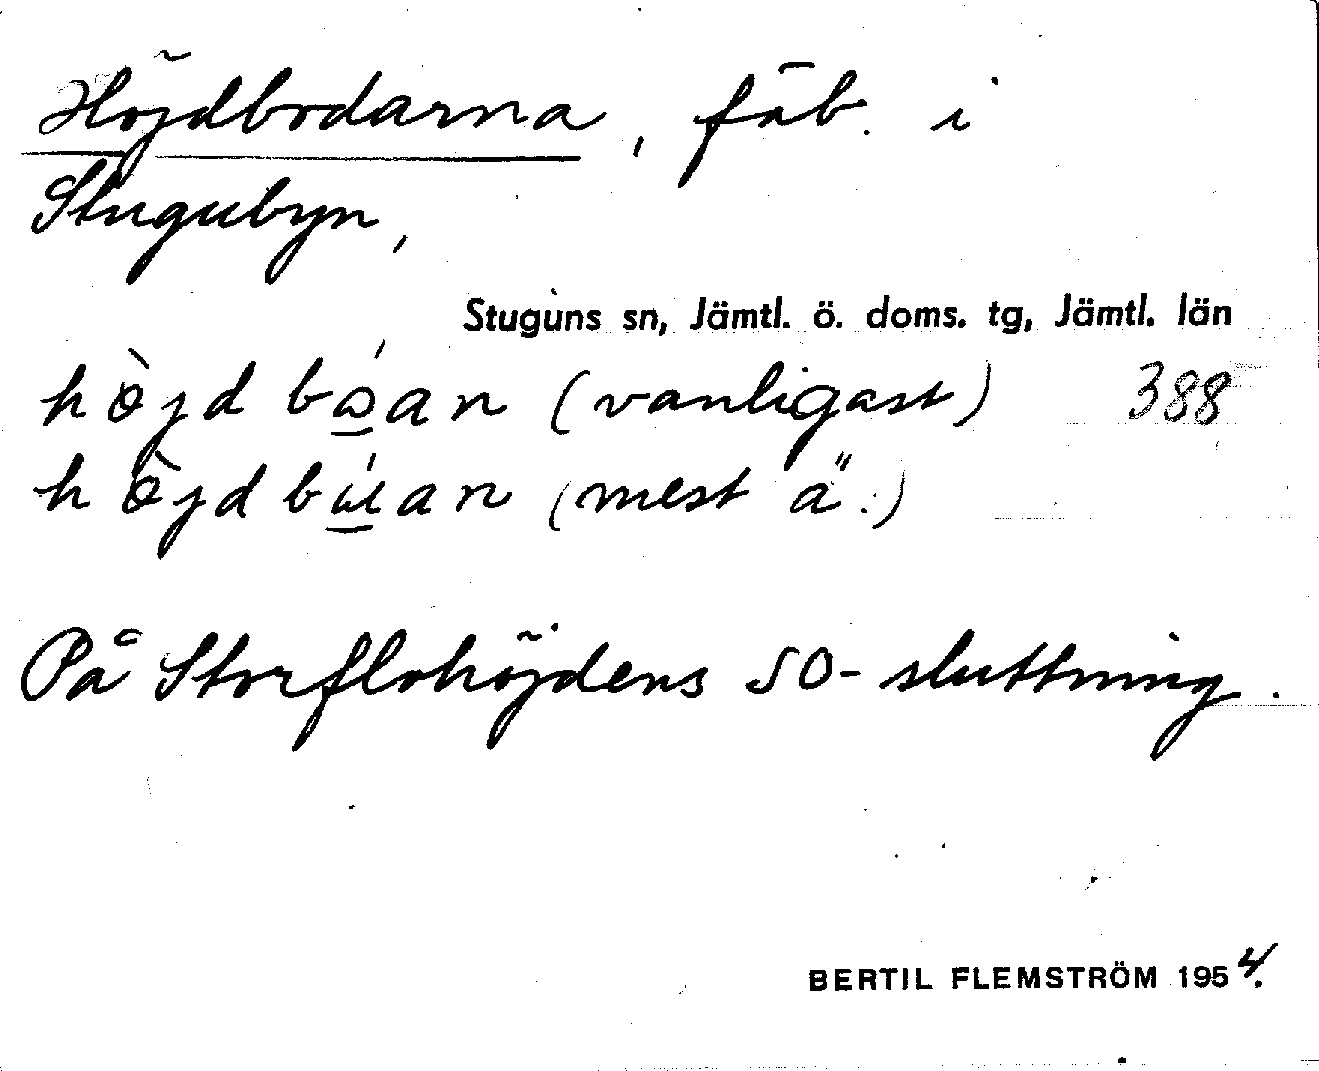 Höjdbodarna, fäb. i
Stugubyn,
Stuguns sn, Jämtl. ö. doms. tg, Jämtl. län
hö̀jd bó̲an (vanligast) 388
hö̀jd bú̲an (mest ä.)
På Storflohöjdens SO-sluttning.
BERTIL FLEMSTRÖM 1954.